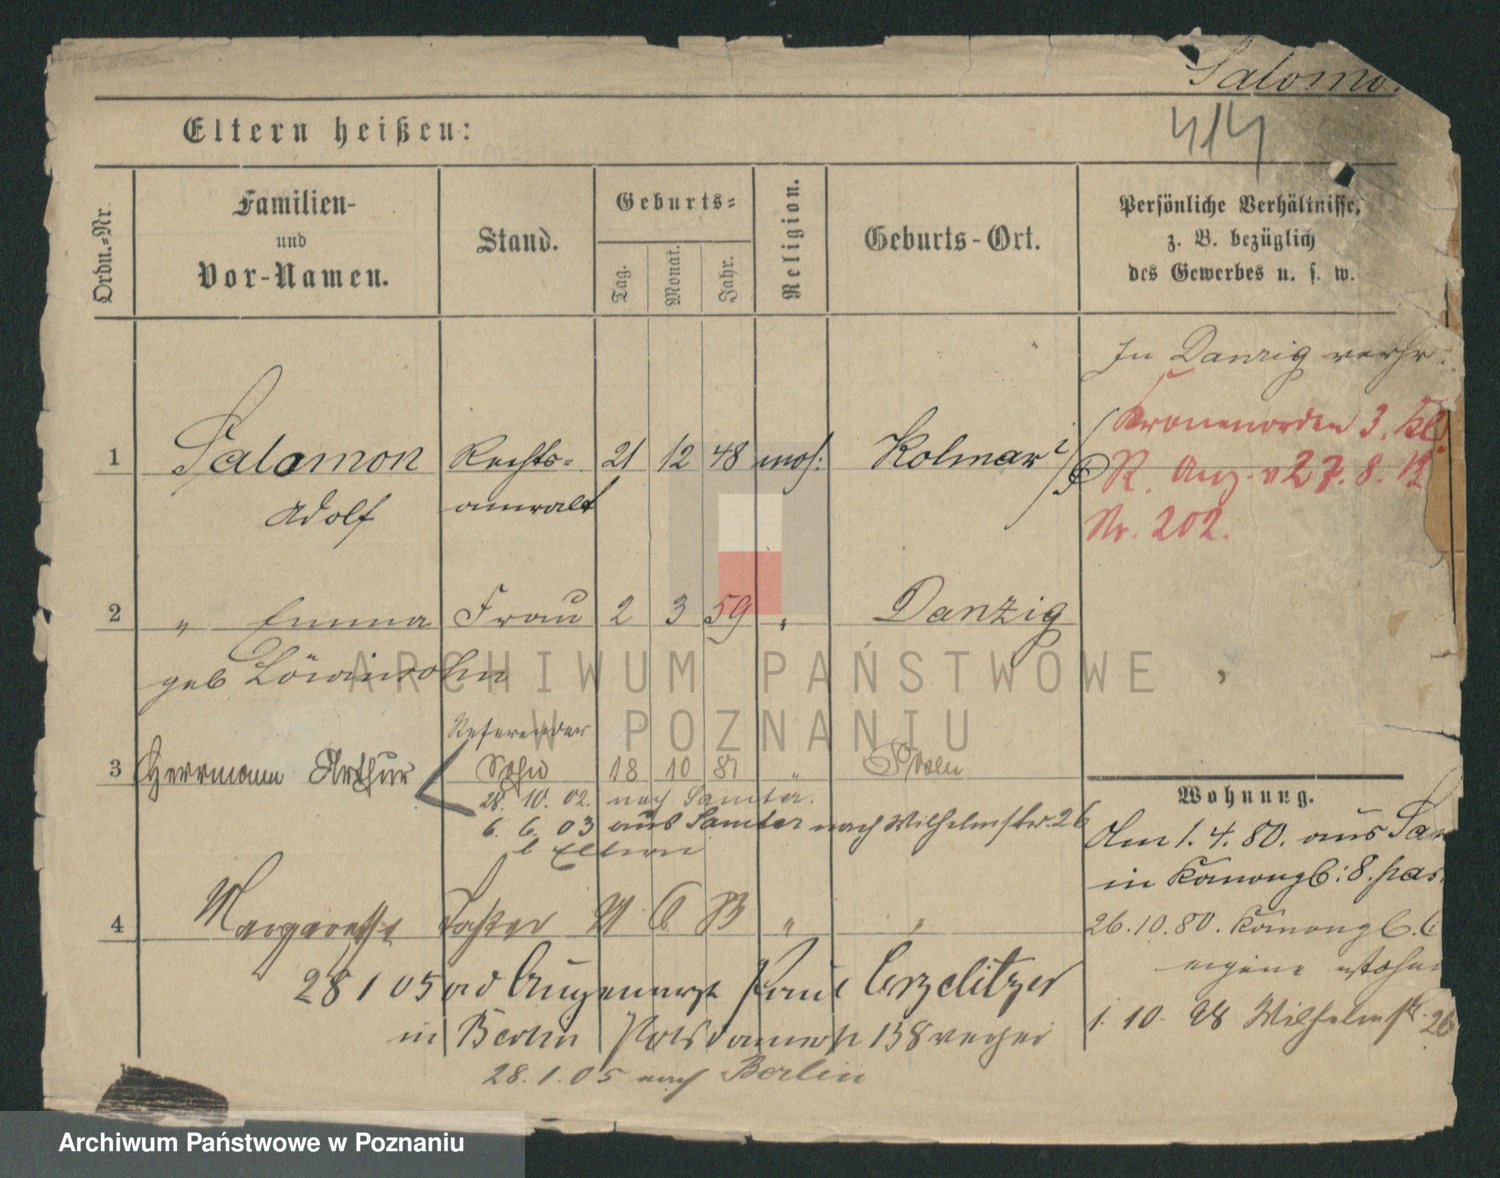 Salomo
414
Eltern heißen:
Ordn.=Nr.
Familien-
und
Vor-Namen.
Stand.
Geburts=
Tag.
Monat.
Jahr.
Religion.
Geburts-Ort.
Persönliche Verhältnisse,
z. B. bezüglich
des Gewerbes u. s. w.
In Danzig verhr
Kronenorden 3. Kl.
1 Salomon Rechts= 21 12 48 mos: Kolmar i/P
R. Anz. v 27. 8. 12
Adolf anwalt
Nr. 202.
2 " Emma Frau 2 3 59 " Danzig
geb Löwinsohn
Referendar
3 Herrmann Arthur Sohn 18 10 81 " Posen
28. 10. 02. nach Samter.
6. 6. 03 aus Samter nach Wilhelmstr. 26
b Eltern
Wohnung.
Am 1. 4. 80. aus Sa
in Kanongb: 8. par.
4 Margarethe Tochter 6 83 " "
26. 10. 80. Kanongb. 6
eigene Wohn
28 1 05 ad Augenarzt Paul Crzelitzer
in Berlin Potsdamerstr 138 verzei
1. 10. 98 Wilhelmstr. 26
28. 1. 05 nach Berlin
ARCHIWUM PAŃSTWOWE
W POZNANIU
Archiwum Państwowe w Poznaniu